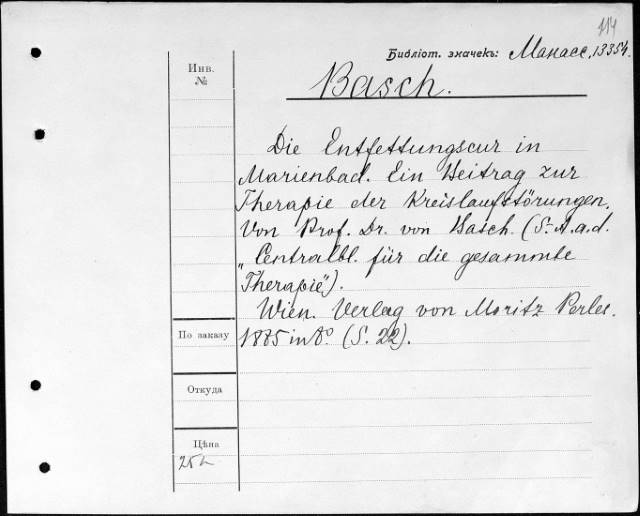 114
Библіот. значекъ: Манасс. 13354.
Инв.
№
Basch.
Die Entfettungscur in
Marienbad. Ein Beitrag zur
Therapie der Kreislaufstörungen.
Von Prof. Dr. von Basch. (S.-A. a. d.
„Centralbl. für die gesammte
Therapie“).
Wien. Verlag von Moritz Perles.
По заказу
1885 in 8º. (S. 22).
Откуда
Цѣна